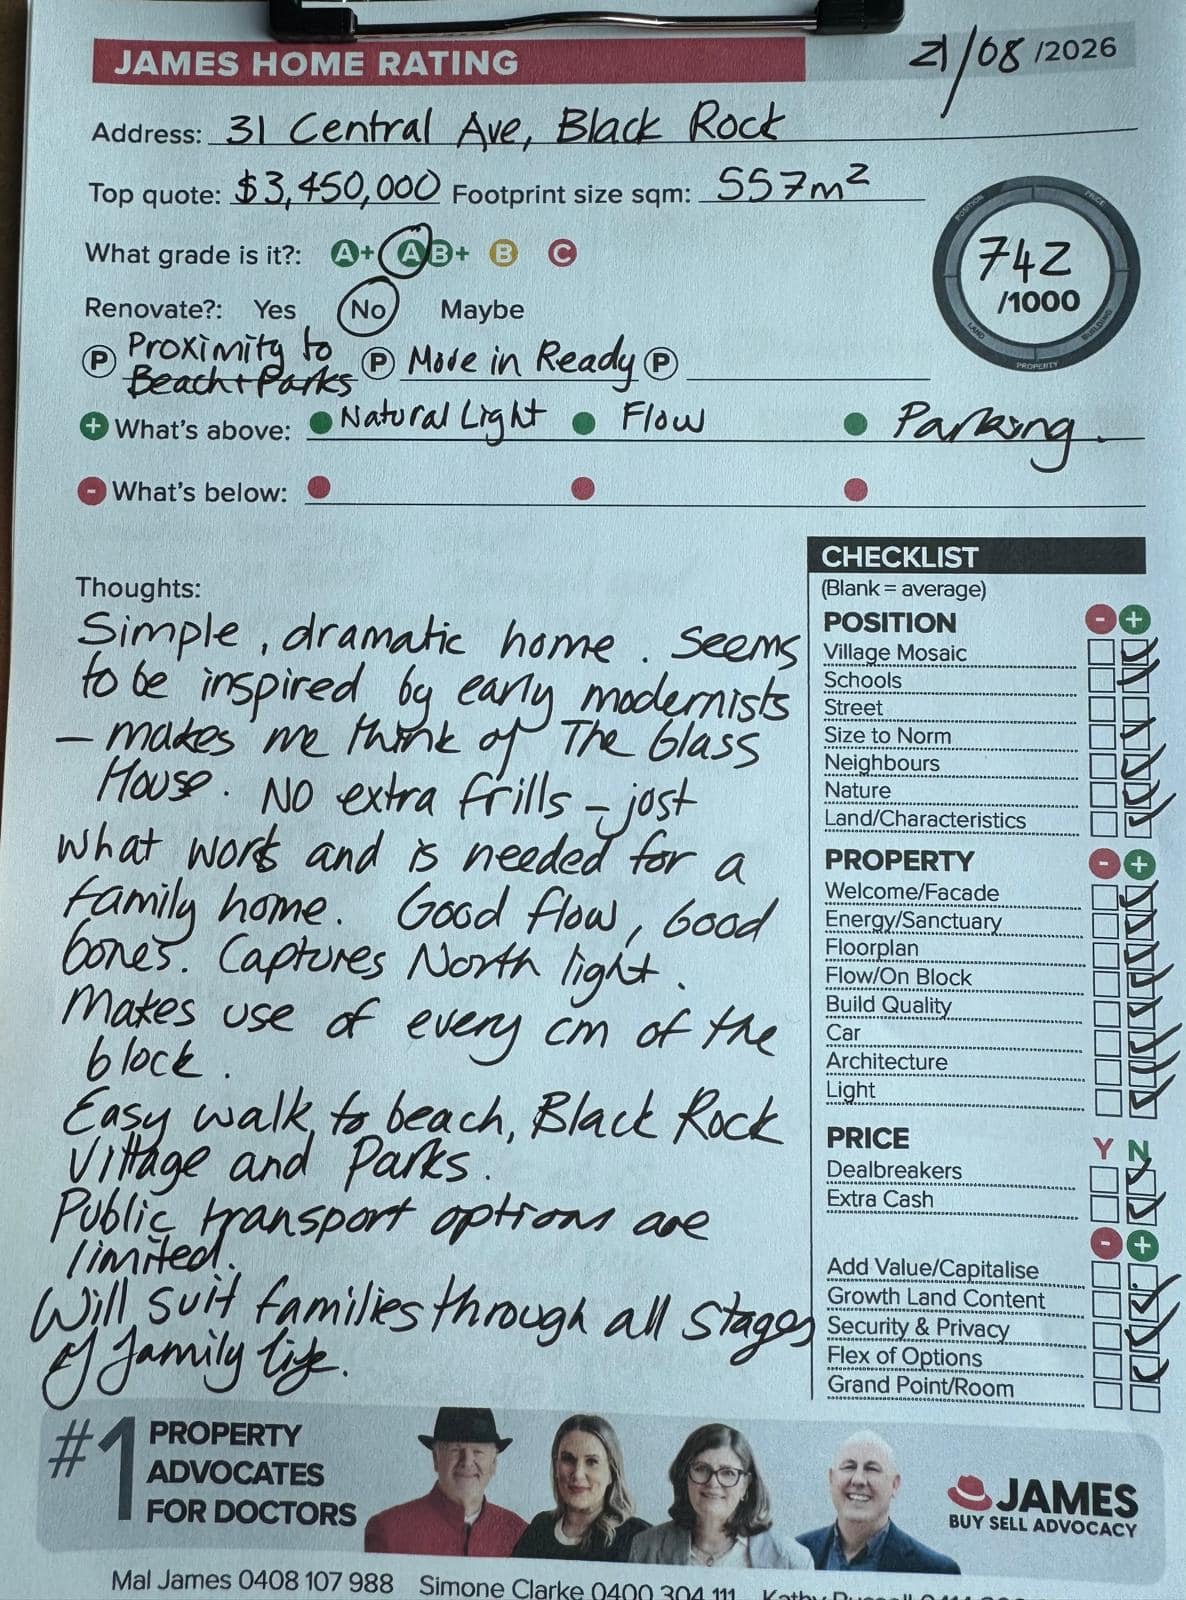 JAMES HOME RATING
21/08/2026
Address: 31 Central Ave, Black Rock
Top quote: $3,450,000 Footprint size sqm: 557m²
What grade is it?: A+ A B+ B C
742
/1000
POSITION PRICE LAND BUILDING PROPERTY
Renovate?: Yes No Maybe
P Proximity to
Beach + Parks P Move in Ready P
+ What's above: Natural Light Flow Parking.
- What's below:
Thoughts:
Simple, dramatic home. Seems
to be inspired by early modernists
- makes me think of The Glass
House. NO extra frills - just
what works and is needed for a
family home. Good flow, Good
bones. Captures North light.
Makes use of every cm of the
block.
Easy walk to beach, Black Rock
Village and Parks.
Public transport options are
limited.
Will suit families through all stages
of family life.
CHECKLIST
(Blank = average)
POSITION - +
Village Mosaic
Schools
Street
Size to Norm
Neighbours
Nature
Land/Characteristics
PROPERTY - +
Welcome/Facade
Energy/Sanctuary
Floorplan
Flow/On Block
Build Quality
Car
Architecture
Light
PRICE Y N
Dealbreakers
Extra Cash
- +
Add Value/Capitalise
Growth Land Content
Security & Privacy
Flex of Options
Grand Point/Room
#1 PROPERTY
ADVOCATES
FOR DOCTORS
JAMES
BUY SELL ADVOCACY
Mal James 0408 107 988 Simone Clarke 0400 304 111